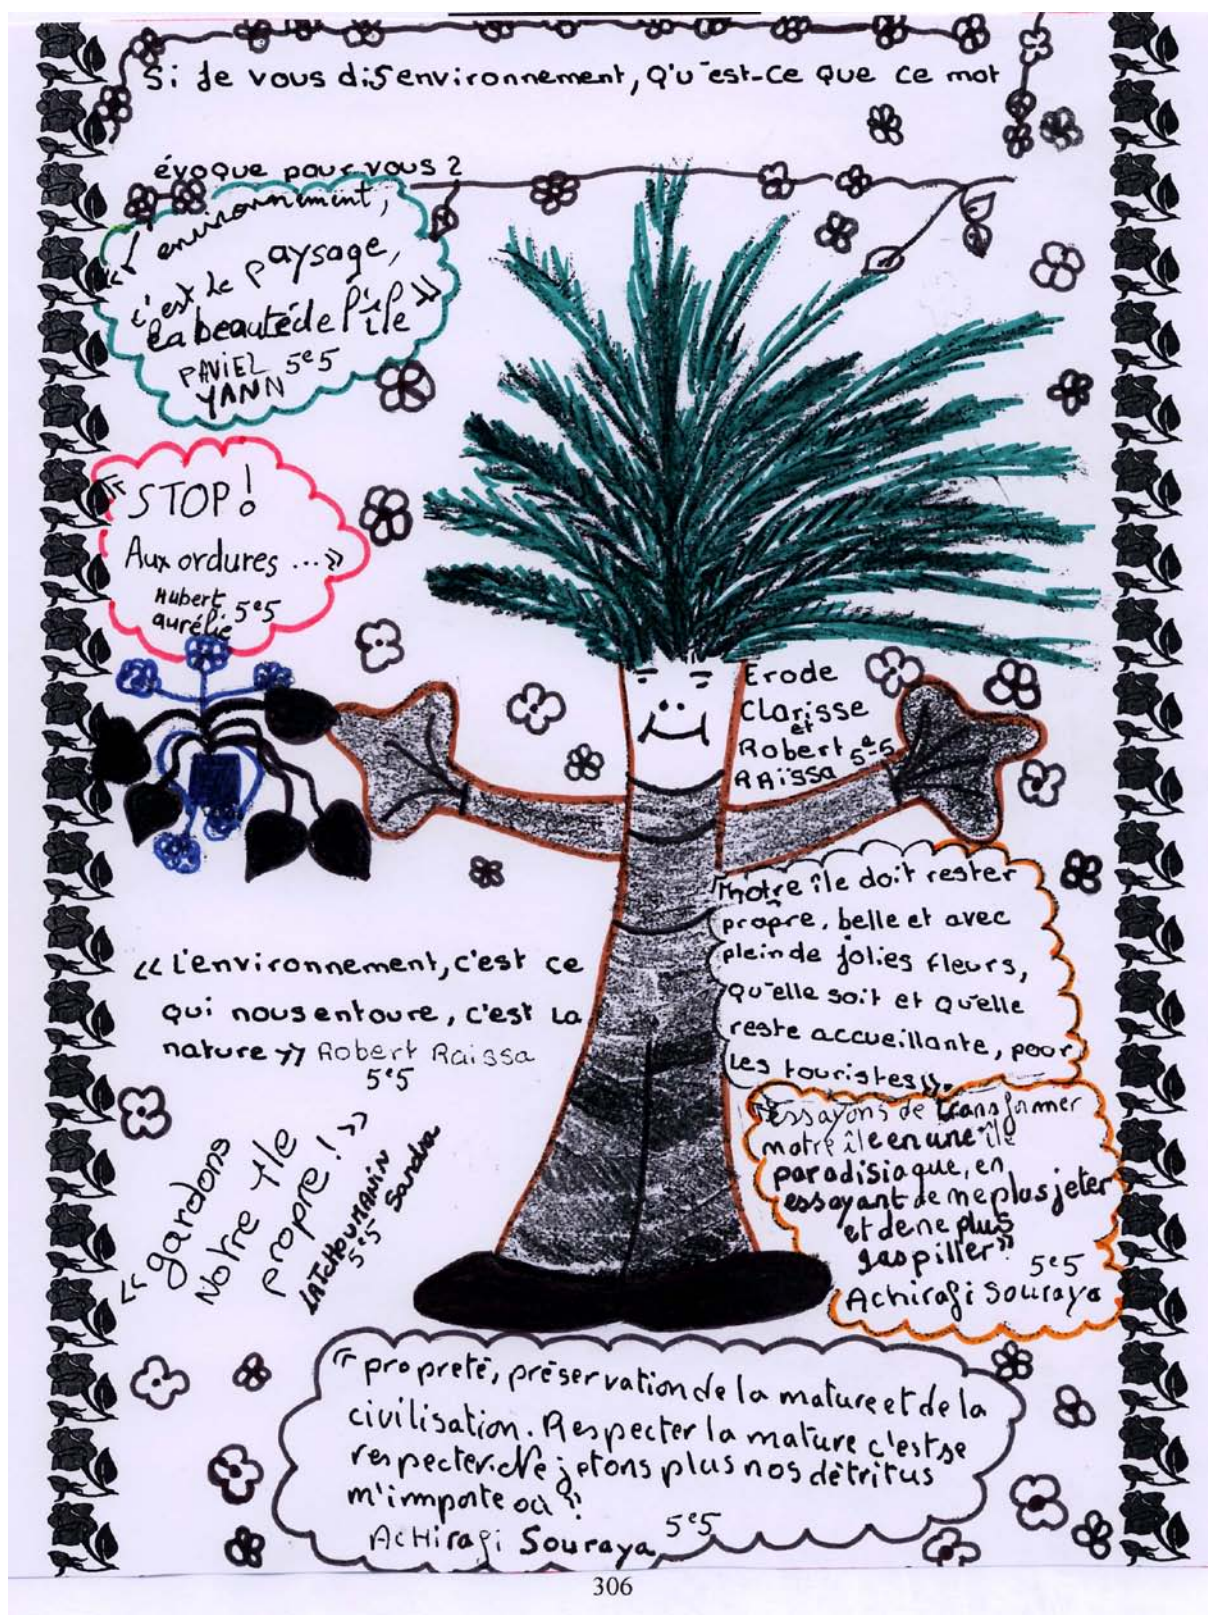 Si Je vous dis environnement, Qu'est-Ce que ce mot
évoque pour vous ?
« L'environnement,
c'est le paysage,
la beauté de l'île »
PAVIEL 5e5
YANN
« STOP !
Aux ordures ... »
Hubert
aurélie 5e5
Erode
Clarisse
et
Robert 5e5
RAissa
"notre île doit rester
propre, belle et avec
plein de jolies fleurs,
qu'elle soit et qu'elle
reste accueillante, pour
les touristes».
« L'environnement, c'est ce
qui nous entoure, c'est la
nature » Robert Raissa
5e5
"essayons de transformer
notre île en une île
paradisiaque, en
essayant de ne plus jeter
et de ne plus
gaspiller" 5e5
Achirafi Souraya
« gardons
Notre île
propre ! »
LATCHOUMANIN
5e5 Sandra
"propreté, préservation de la nature et de la
civilisation. Respecter la nature c'est se
respecter. Ne jetons plus nos détritus
n'importe où "
Achirafi Souraya 5e5
306